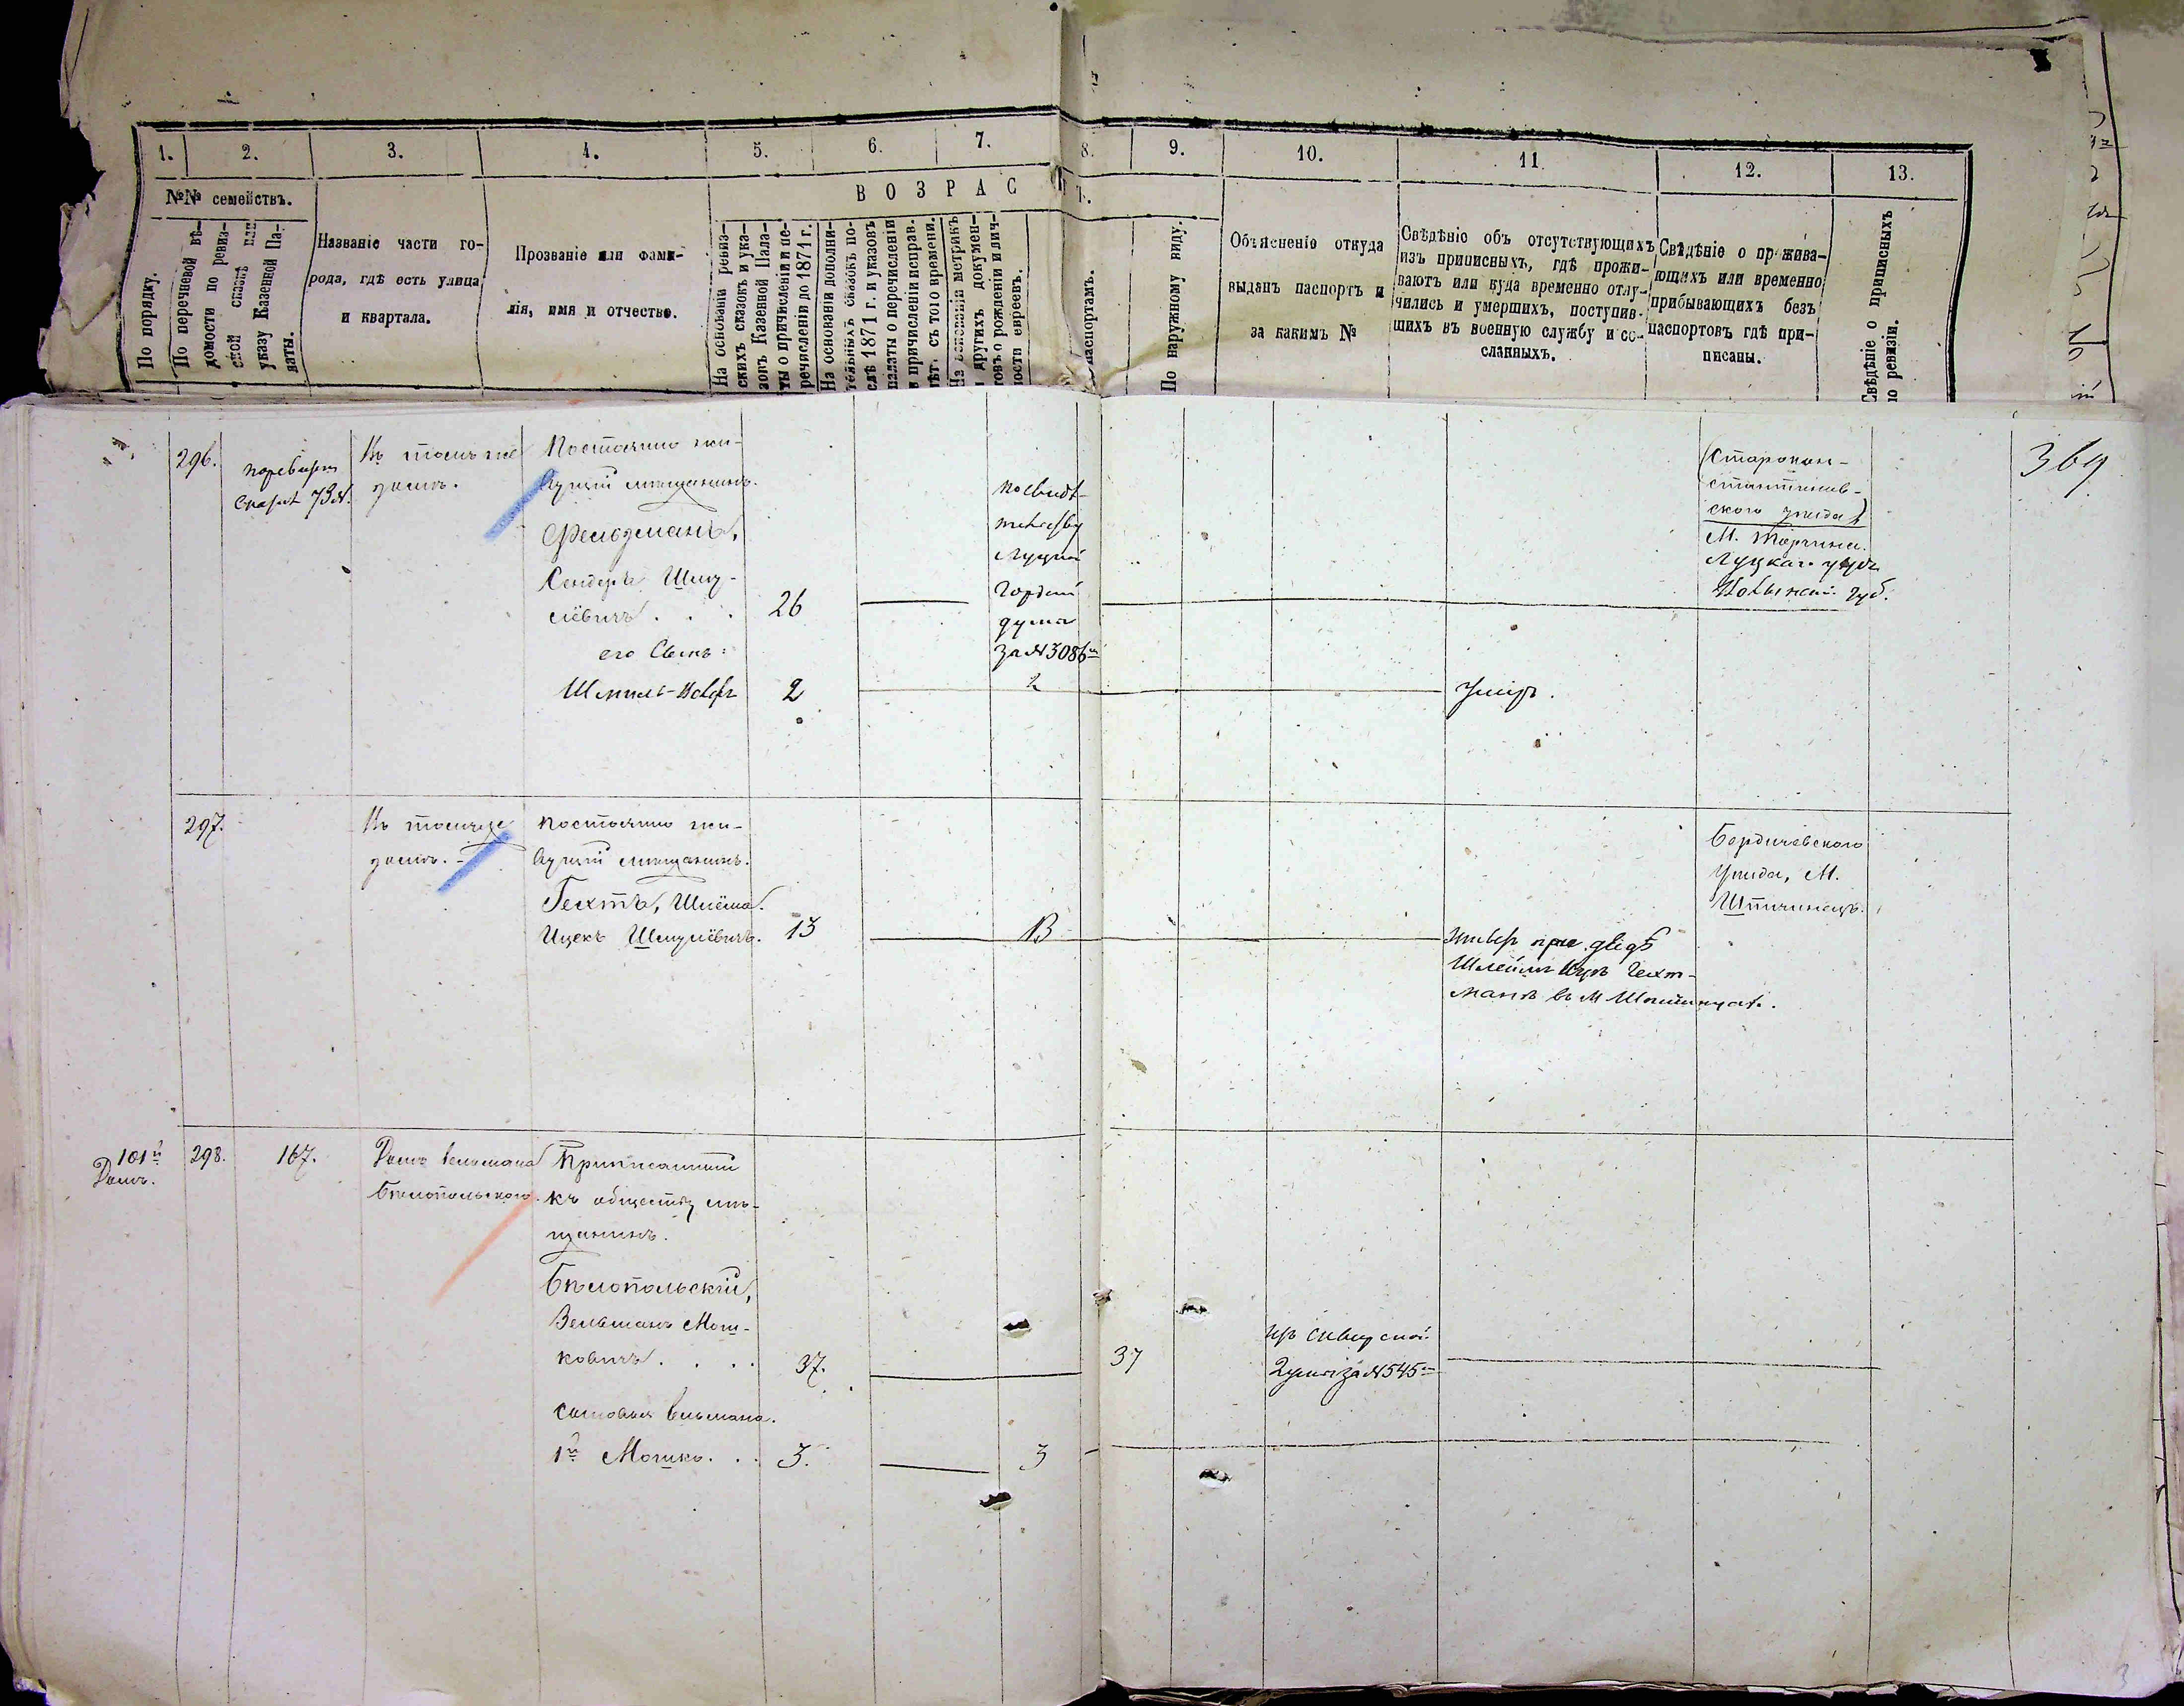 1. 2. 3. 4. 5. 6. 7. 8. 9. 10. 11. 12. 13.
№№ семействъ.
По порядку.
По перечневой вѣ-
домости по ревиз-
ской сказкѣ или
указу Казенной Па-
латы.
Названіе части го-
рода, гдѣ есть улица
и квартала.
Прозваніе или фами-
лія, имя и отчество.
ВОЗРАСТЪ.
На основаніи ревиз-
скихъ сказокъ и ука-
зокъ Казенной Пала-
ты о причисленіи и пе-
речисленіи до 1871 г.
На основаніи дополни-
тельныхъ сказокъ по-
слѣ 1871 г. и указовъ
палаты о перечисленіи
и причисленіи исправ.
лѣт. съ того времени.
На основаніи метрикъ
и другихъ докумен-
товъ о рожденіи и лич-
ности евреевъ.
паспортамъ.
По наружному виду.
Объясненіе откуда
выданъ паспортъ и
за какимъ №
Свѣдѣніе объ отсутствующихъ
изъ приписныхъ, гдѣ прожи-
ваютъ или куда временно отлу-
чились и умершихъ, поступив-
шихъ въ военную службу и со-
сланныхъ.
Свѣдѣніе о прожива-
ющихъ или временно
прибывающихъ безъ
паспортовъ гдѣ при-
писаны.
Свѣдѣніе о приписныхъ
по ревизіи.
369
296.
Въ томъ же
домѣ.
Постоянно жи-
вущій мѣщанинъ.
Фельдманъ,
Сендеръ Шму-
левичъ . . . 26
его Сынъ:
Шмиль- 2
Луцкой
Город.
дума
за № 3086
2
Умеръ.
Старокон-
стантинов-
ского уѣзда
М. Торчина.
Луцкаго уѣзда
Волынской губ.
297.
Въ томъ же
домѣ.
Постоянно жи-
вущій мѣщанинъ.
Гехтъ, Шлёма
Ицекъ Шмулёвичъ. 13
13
при дѣдѣ
Гехт-
манъ въ М
Бердичевского
Уѣзда, М.
101й
Домъ.
298. 167.
Домъ Вельмана
Бѣлопольского.
Приписанный
къ обществу мѣ-
щанинъ.
Бѣлопольскій,
Вельманъ Мош-
ковичъ . . . . 37.
37
Думы за № 545
Сыновья Вельмана.
1й Мошко. . . 3.
3